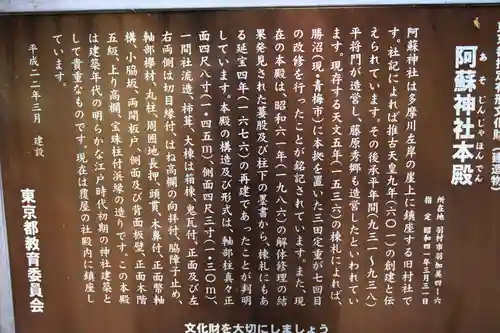 阿蘇神社本殿
あそじんじゃほんでん
所在地 羽村市羽加美四−六
指定 昭和四一年三月三一日
阿蘇神社は多摩川左岸の崖上に鎮座する旧村社で
す。社記によれば推古天皇九年（六〇一）の創建と伝
えられています。その後承平年間（九三一〜九三八）
平将門が造営し、藤原秀郷も造営したといわれてい
ます。現存する天文五年（一五三六）の棟札によれば、
勝沼（現・青梅市）に本拠を置いた三田定重が七回目
の改修を行ったことが銘記されています。また、現
在の本殿は、昭和六一年（一九八六）の解体修理の結
果発見された蟇股及び柱下の墨書から、棟札にもあ
る延宝四年（一六七六）の再建であったことが判明
しています。本殿の構造及び形式は、軸部柱真々正
面四尺八寸（一・四五m）、側面四尺三寸（一・三〇m）、
一間社流造、柿葺、大棟は箱棟、鬼瓦付、正面及び左
右両側は切目縁付、はね高欄の向拝付、脇障子止め、
軸部欅材、丸柱、周囲地長押、頭貫、木鼻付、正面幣軸
構、小脇板、両開板戸、側面及び背面板壁、正面木階
五級、上り高欄、宝珠柱付浜縁の造りです。この本殿
は建築年代の明らかな江戸時代初期の神社建築と
して貴重なものです。現在は覆屋の社殿内に鎮座し
ています。
平成二二年三月 建設
東京都教育委員会
文化財を大切にしましょう